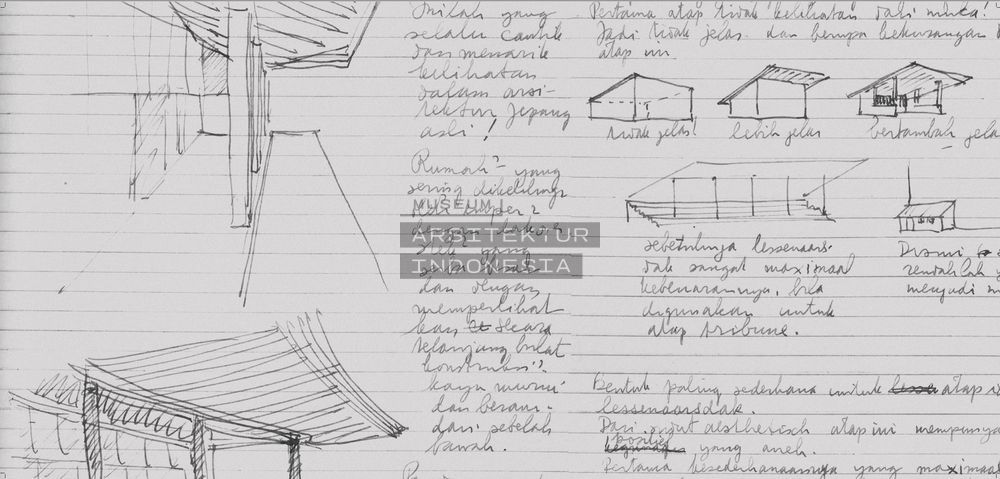 Inilah yang
selalu cantik
dan menarik
kelihatan
dalam arsi-
tektur Jepang
asli!
Rumah² yang
sering dikelilingi
dengan
dan dengan
memperlihat
kan secara
telanjang bulat
konstruksi²
kayu murni
dan berani
dari sebelah
bawah.
MUSEUM
ARSITEKTUR
INDONESIA
Pertama atap tidak kelihatan dari muka!
Jadi tidak jelas. dan berupa kekurangan
atap ini
tidak jelas!
lebih jelas
bertambah jela
sebetulnya lessenaars-
dak sangat maximaal
kebenarannya, bila
digunakan untuk
atap tribune.
Disini
rendahlah
menjadi
Bentuk paling sederhana untuk atap
lessenaarsdak.
Dari sudut aesthetisch atap ini mempunya
positie yang aneh.
Pertama kesederhanaannya yang maximaal